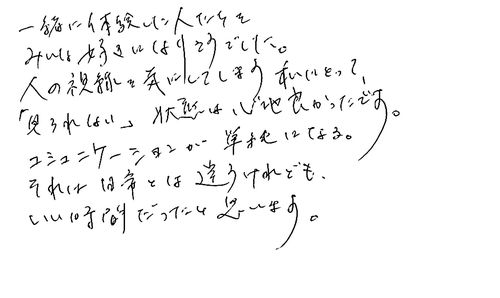 一緒に体験した人たちを
みんな好きになりそうでした。
人の視線を気にしてしまう私にとって、
「見られない」状態は心地良かったです。
コミュニケーションが単純になる。
それは日常とは違うけれども、
いい時間だったと思います。